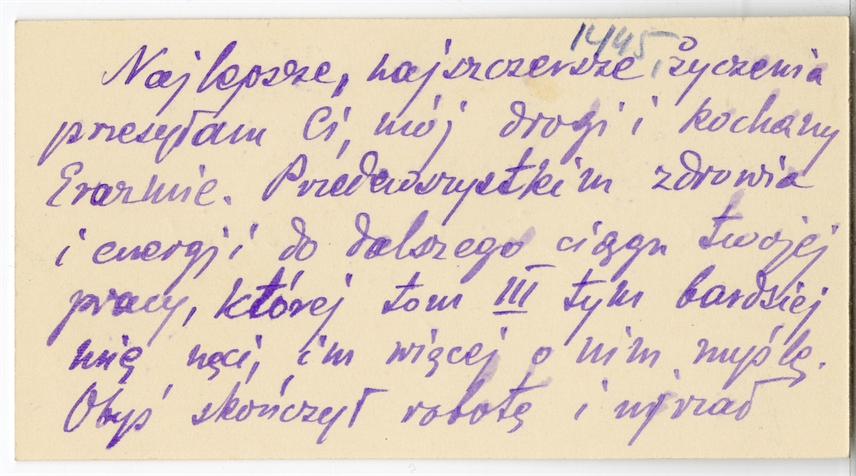 1445
Najlepsze, najszczersze życzenia
przesyłam Ci, mój drogi i kochany
Erazmie. Przedewszystkim zdrowia
i energji do dalszego ciągu twojej
pracy, której tom III tym bardziej
mię nęci, im więcej o nim myślę.
Obyś skończył robotę i ujrzał